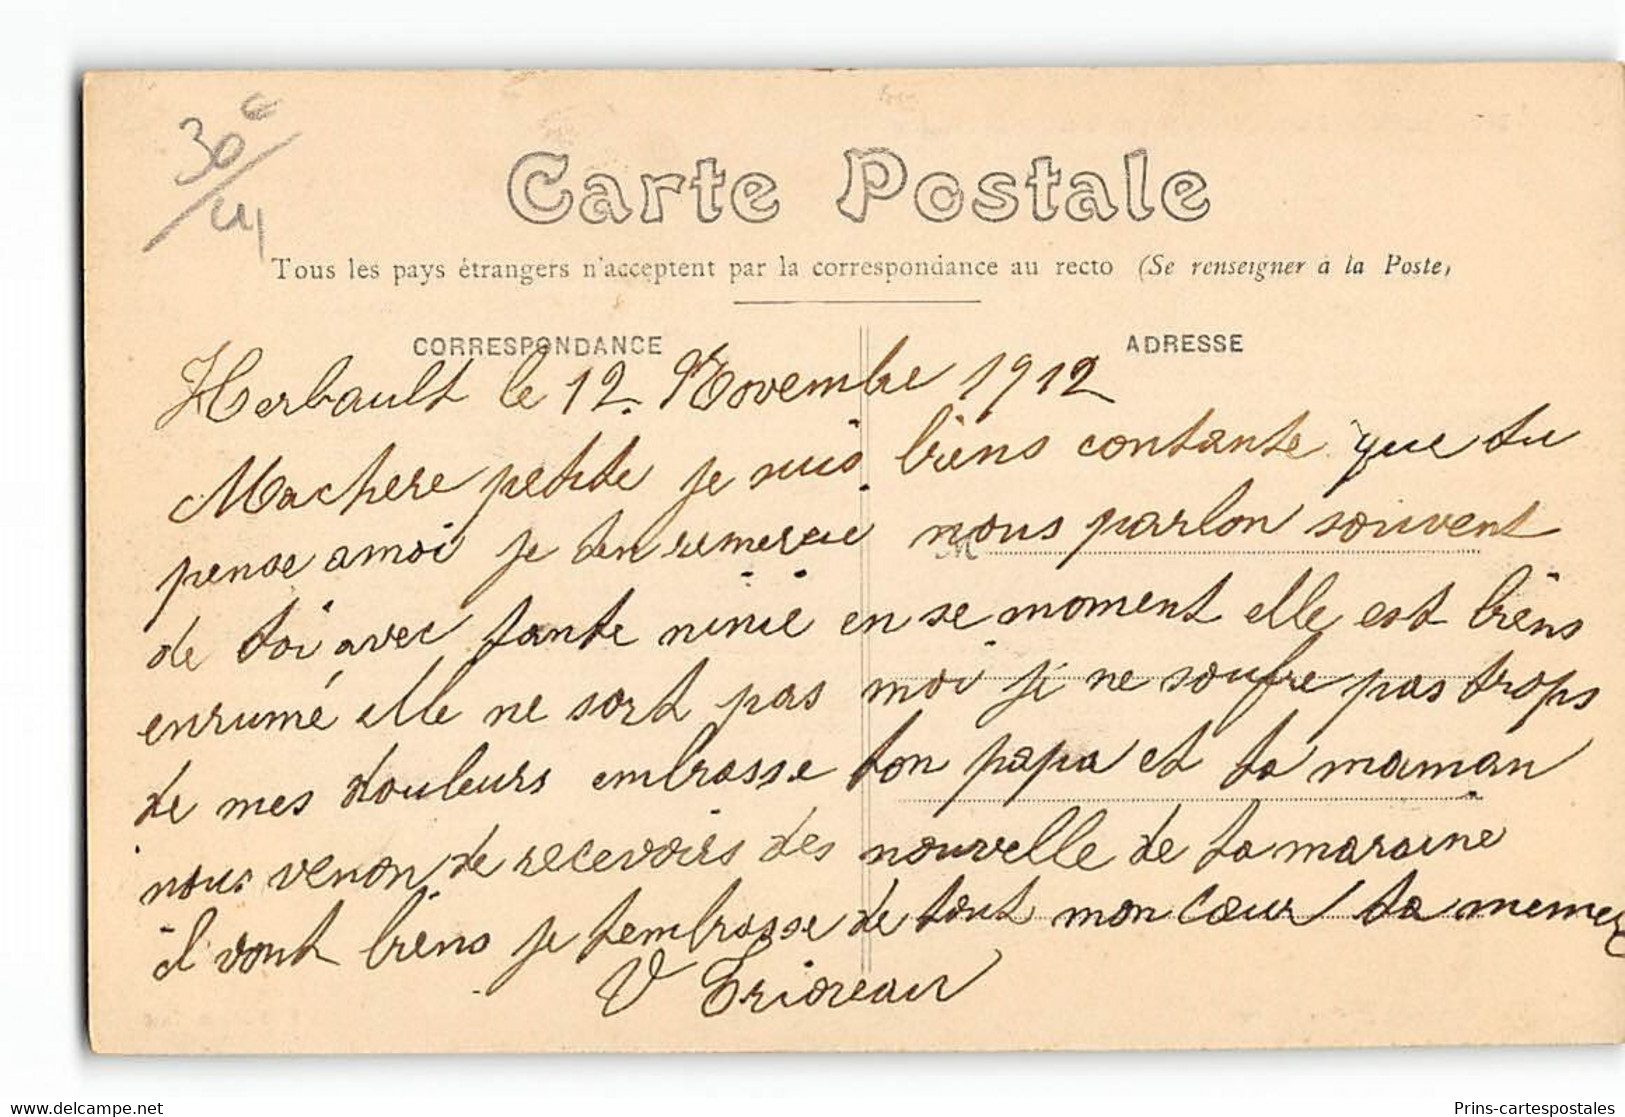 30€
/41
Carte Postale
Tous les pays étrangers n'acceptent par la correspondance au recto (Se renseigner à la Poste)
CORRESPONDANCE
ADRESSE
Herbault le 12 Novembre 1912
Machere petite je suis biens contante que tu
pense amoi je ten remercie nous parlon souvent
de toi avec tante ninie en se moment elle est biens
enrumé elle ne sort pas moi je ne soufre pas trops
de mes douleurs embrasse ton papa et ta maman
nous venon de recevoirs des nouvelle de ta maraine
il vont biens je tembrasse de tout mon Cœur ta memer
V Trioreau
www.delcampe.net
Prins-cartespostales